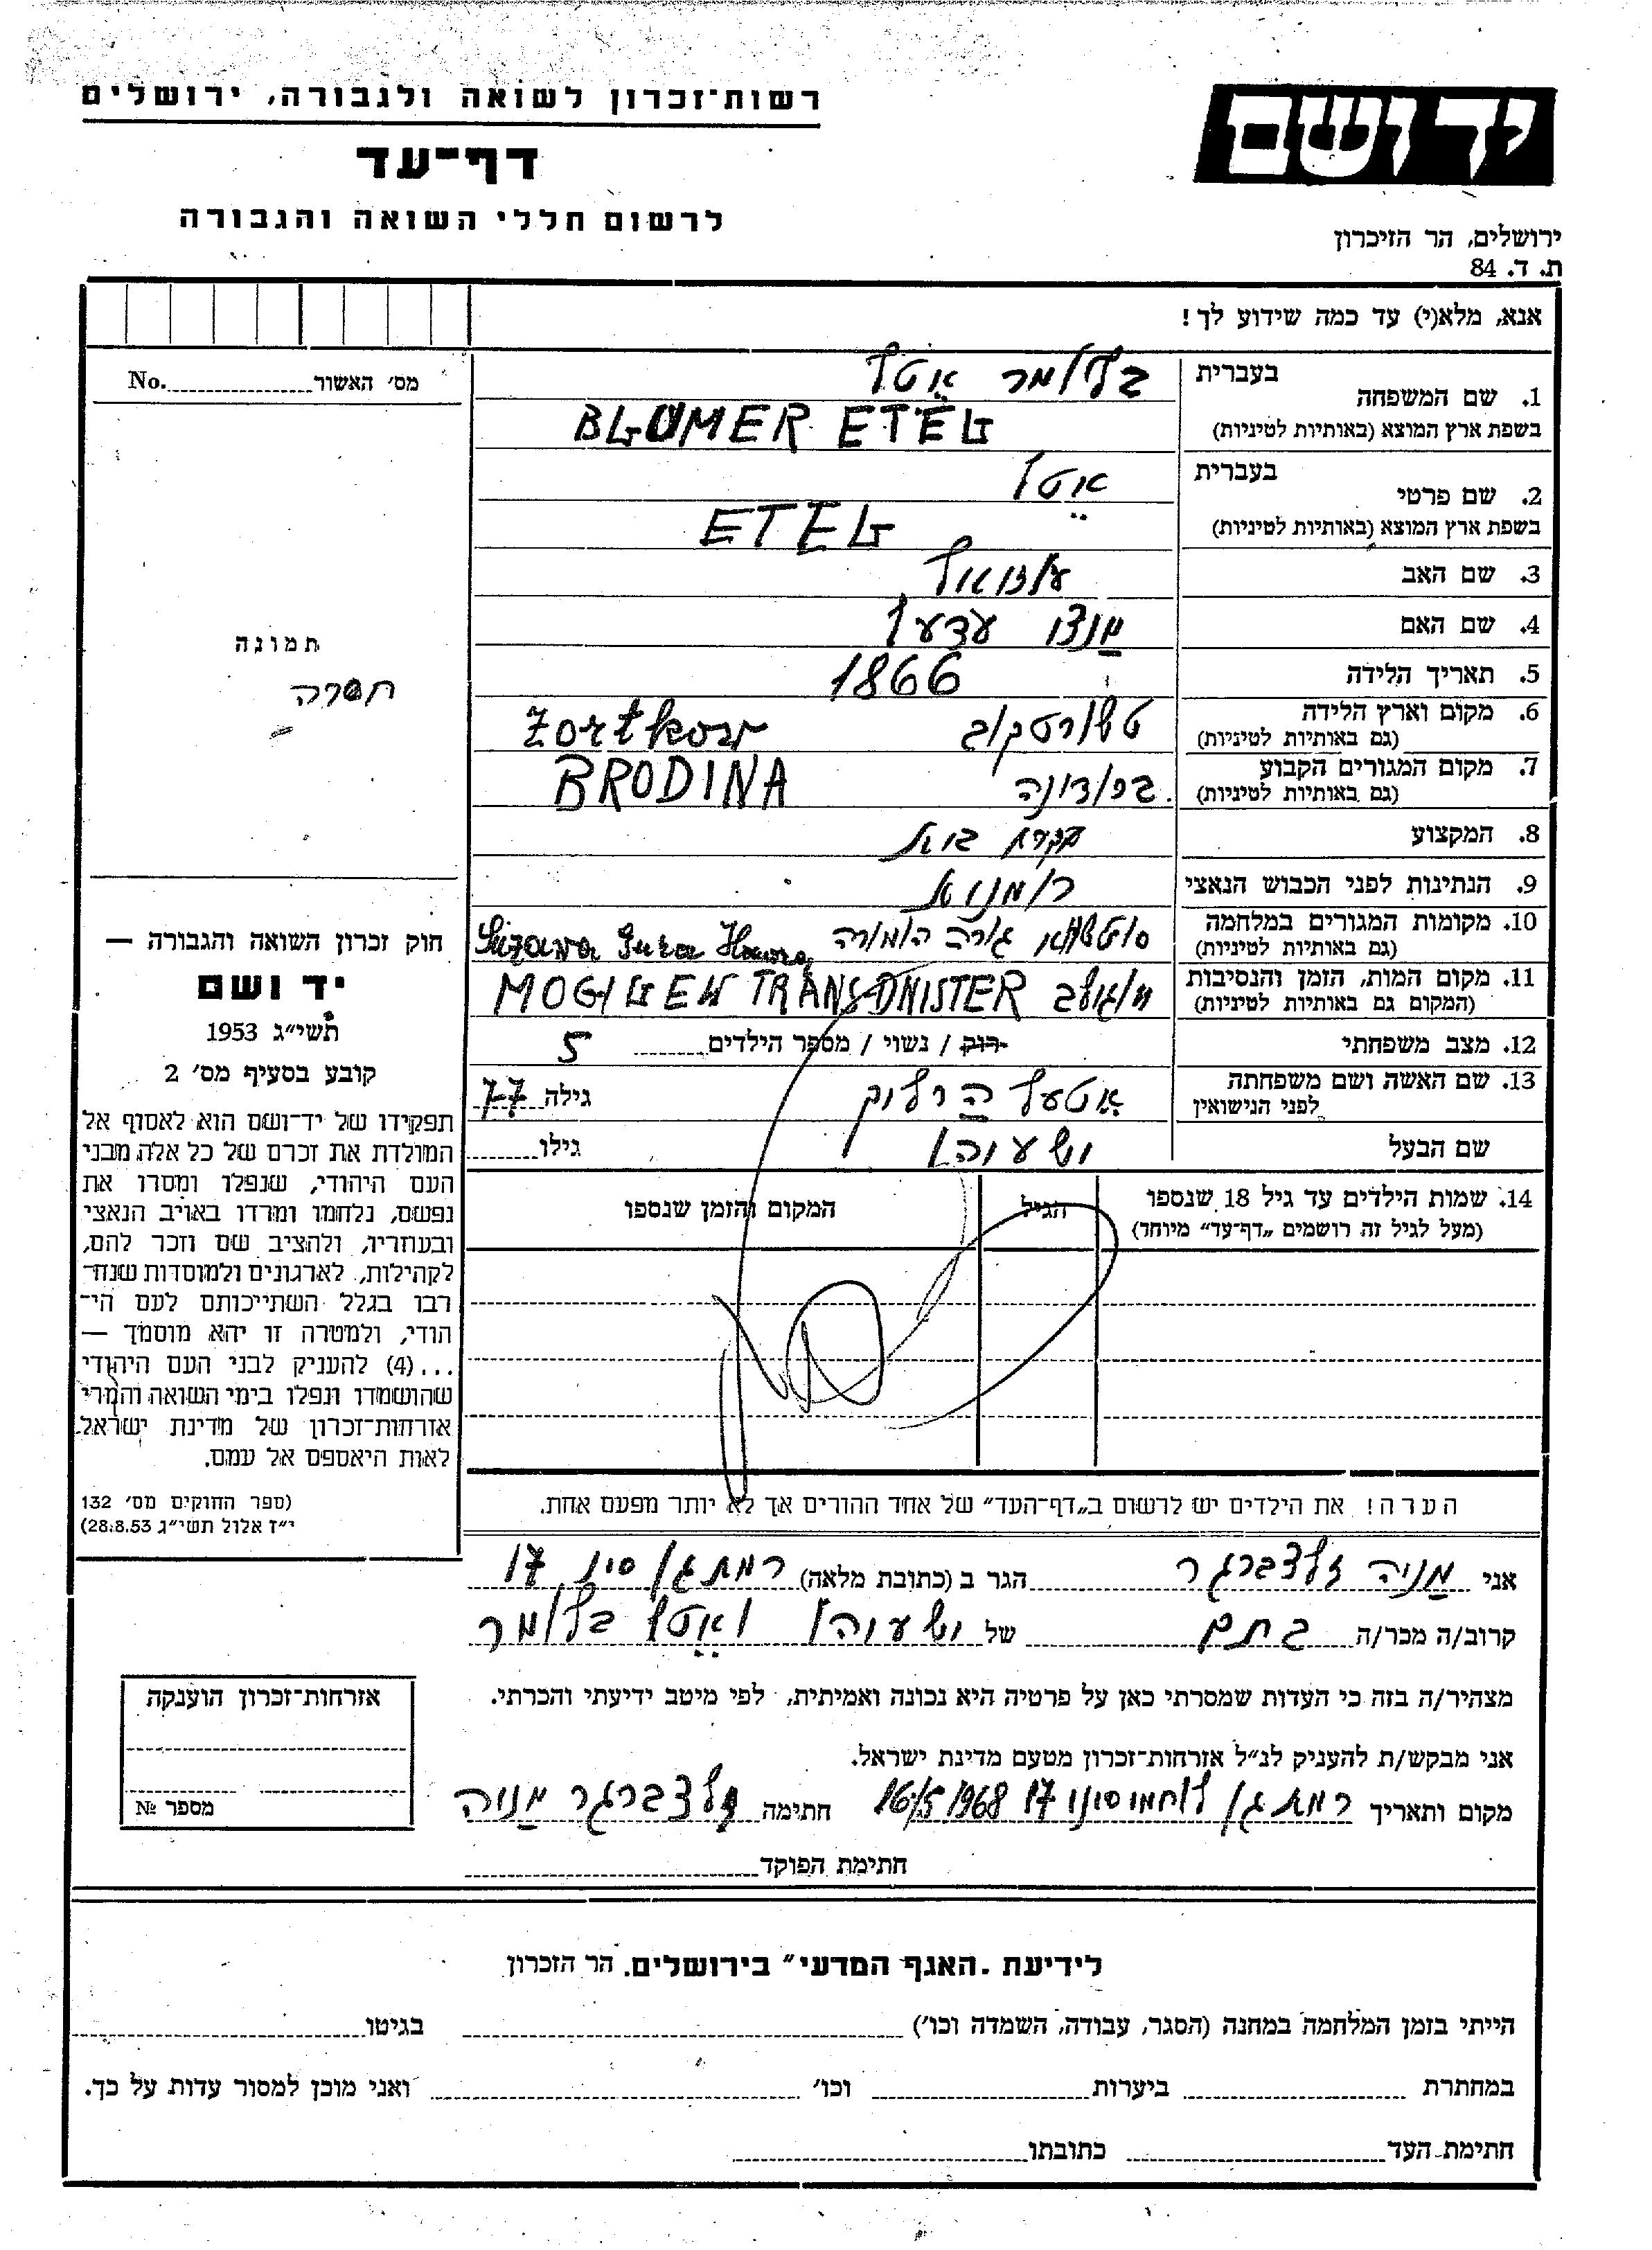 רשות־זכרון לשואה ולגבורה, ירושלים
יד ושם
דף־עד
לרשום חללי השואה והגבורה
ירושלים, הר הזיכרון
ת. ד. 84
אנא, מלא(י) עד כמה שידוע לך!
מס׳ האשור No.
1. שם המשפחה בעברית בלומר אטל
בשפת ארץ המוצא (באותיות לטיניות) BLUMER ETEL
2. שם פרטי בעברית אטל
בשפת ארץ המוצא (באותיות לטיניות) ETEL
3. שם האב
4. שם האם
5. תאריך הלידה 1866
6. מקום וארץ הלידה (גם באותיות לטיניות) טשורטקוב Zortkow
7. מקום המגורים הקבוע (גם באותיות לטיניות) ברודינה BRODINA
8. המקצוע עקרת בית
9. הנתינות לפני הכבוש הנאצי רומנית
10. מקומות המגורים במלחמה (גם באותיות לטיניות) גורה הומורה Gura
11. מקום המות, הזמן והנסיבות (המקום גם באותיות לטיניות) מוגילב MOGILEW TRANSDNISTER
12. מצב משפחתי רווק / נשוי / מספר הילדים 5
13. שם האשה ושם משפחתה לפני הנישואין אטעל הרליק גילה 77
שם הבעל ישעיהו גילו
14. שמות הילדים עד גיל 18 שנספו הגיל המקום והזמן שנספו
(מעל לגיל זה רושמים „דף־עד״ מיוחד)
תמונה
חסרה
חוק זכרון השואה והגבורה —
יד ושם
תשי״ג 1953
קובע בסעיף מס׳ 2
תפקידו של יד־ושם הוא לאסוף אל
המולדת את זכרם של כל אלה מבני
העם היהודי, שנפלו ומסרו את
נפשם, נלחמו ומרדו באויב הנאצי
ובעוזריו, ולהציב שם וזכר להם,
לקהילות, לארגונים ולמוסדות שנח־
רבו בגלל השתייכותם לעם הי־
הודי, ולמטרה זו יהא מוסמך —
...(4) להעניק לבני העם היהודי
שהושמדו ונפלו בימי השואה והמרי
אזרחות־זכרון של מדינת ישראל
לאות היאספם אל עמם.
(ספר החוקים מס׳ 132
י״ז אלול תשי״ג 28.8.53)
הערה! את הילדים יש לרשום ב„דף־העד״ של אחד ההורים אך לא יותר מפעם אחת.
אני מניה זלצברגר הגר ב (כתובת מלאה) רמת גן סיני 17
קרוב/ה מכר/ה בתם של ישעיהו ואטל בלומר
מצהיר/ה בזה כי העדות שמסרתי כאן על פרטיה היא נכונה ואמיתית, לפי מיטב ידיעתי והכרתי.
אני מבקש/ת להעניק לנ״ל אזרחות־זכרון מטעם מדינת ישראל.
מקום ותאריך רמת גן לוחמי סיני 17 16/5 1968 חתימה זלצברגר מניה
חתימת הפוקד
אזרחות־זכרון הוענקה
מספר №
לידיעת „האגף המדעי״ בירושלים. הר הזכרון
הייתי בזמן המלחמה במחנה (הסגר, עבודה, השמדה וכו׳) בגיטו
במחתרת ביערות וכו׳ ואני מוכן למסור עדות על כך.
חתימת העד כתובתו